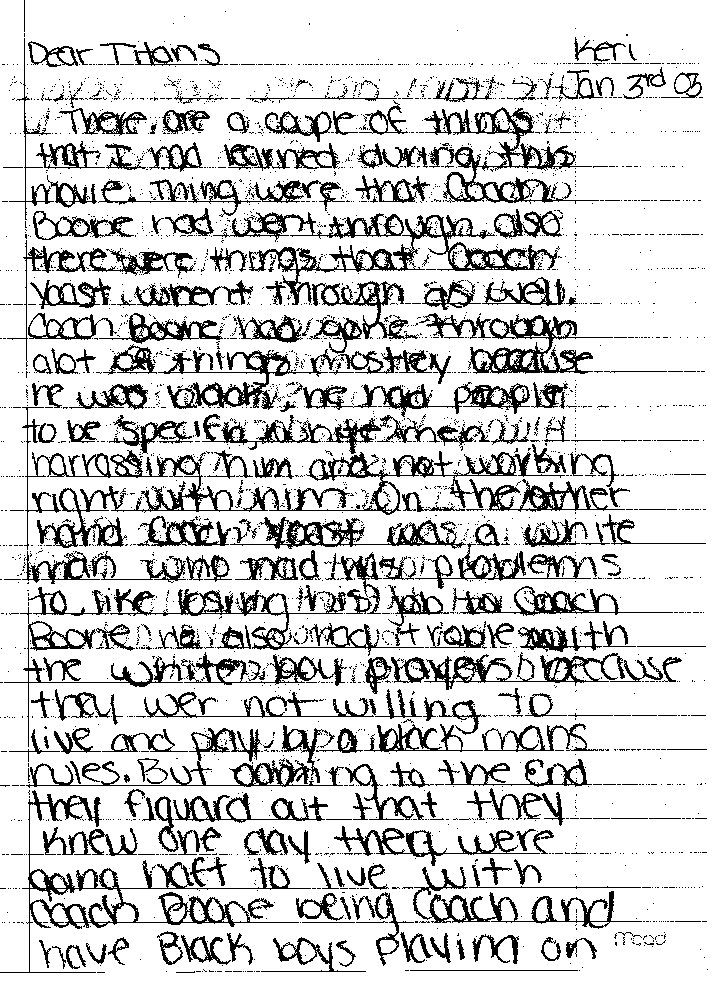 Dear Titans Keri
Jan 3rd 03
There are a couple of things
that I had learned during this
movie. Thing were that Coach
Boone had went through, also
there were things that Coach
Yoast whent through as well.
Coach Boone had gone through
alot of things mostley because
he was black, he had people
to be specific, white men
harrassing him and not working
right with him. On the other
hand Coach Yoast was a white
man who had his problems
to, like losing his job to Coach
Boone he also had trouble with
the white boy players because
they wer not willing to
live and play by a black mans
rules. But coming to the End
they figuard out that they
knew one day they were
going haft to live with
Coach Boone being Coach and
have Black boys playing on
mead